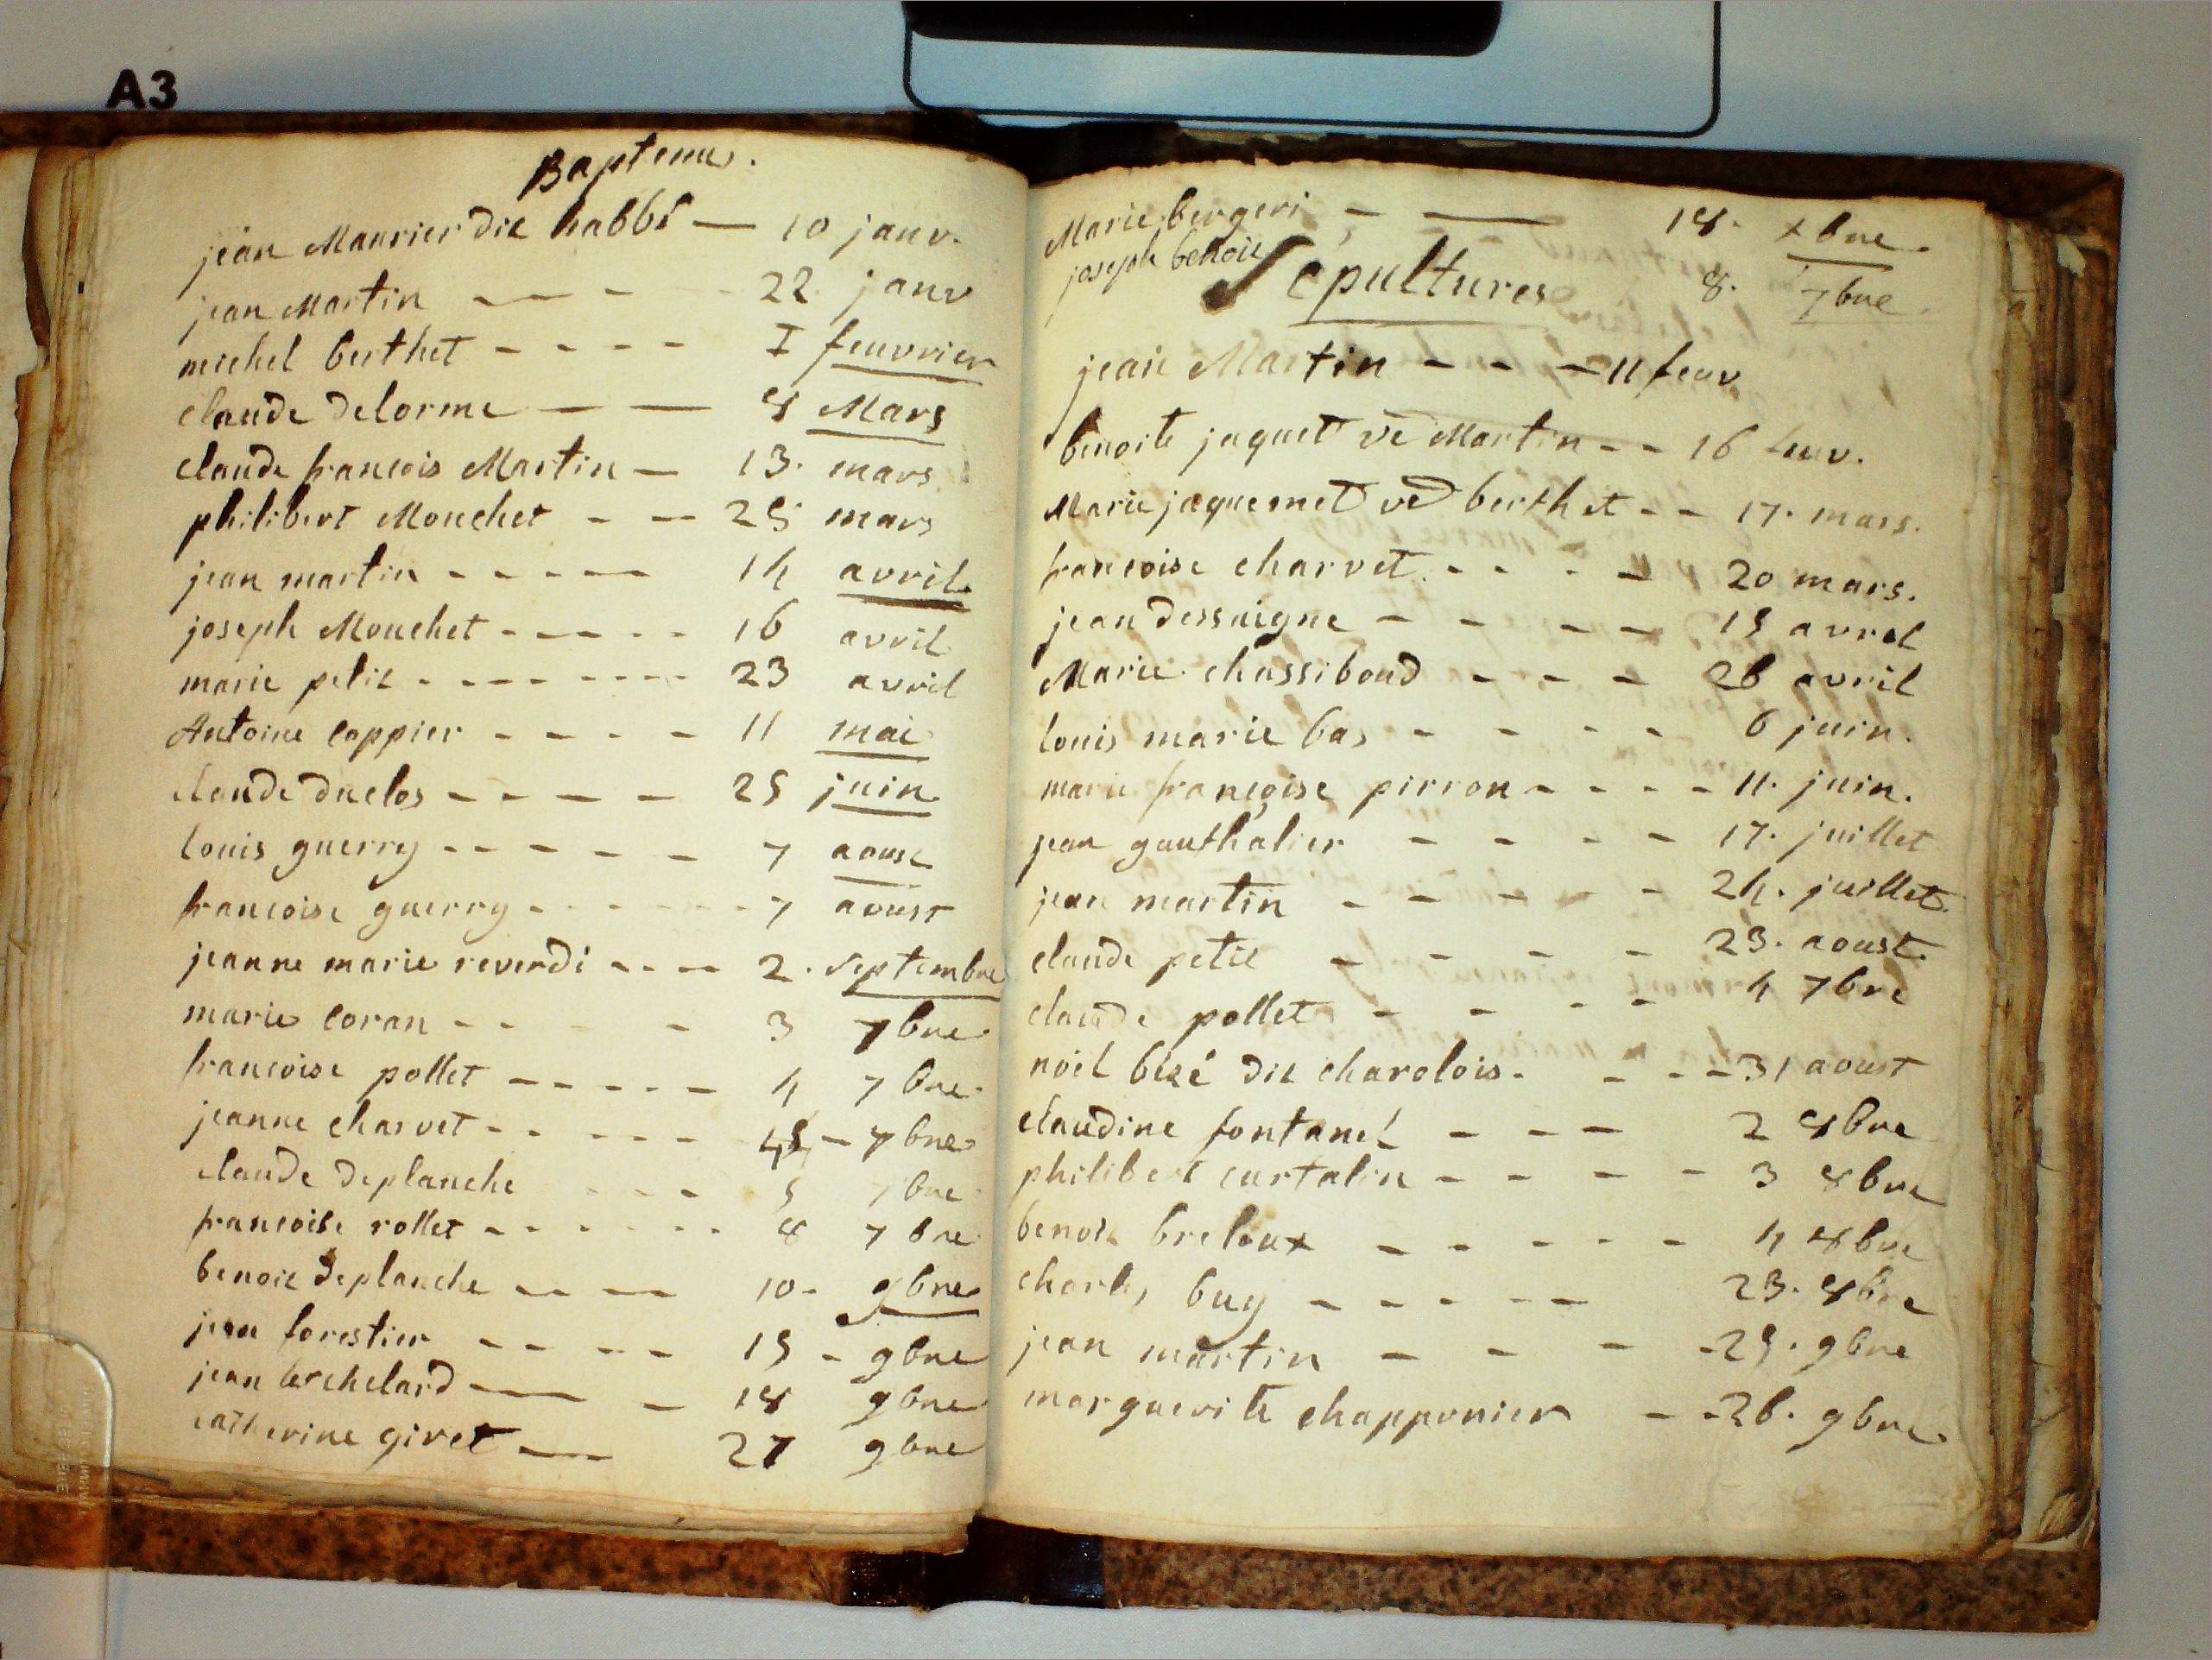 A3
Baptemes.
jean Maurier dit habbé — 10 janv.
jean Martin — — - 22 janv
michel berthet - - - - I feuvrier
claude delorme — — 8 Mars
claude francois Martin — 13. mars
philibert Mouchet - — 25 mars
jean martin - - - - — 14 avril
joseph Mouchet - - - - - 16 avril
marie petit - - - - - - - 23 avril
Antoine coppier - - - - 11 mai
claude duclos - - - - - 25 juin
louis guerry - - - - - - 7 aoust
francoise guerry - - - - - - 7 aoust
jeanne marie reverdi - - - - 2. septembre
marie coran - - - 3 7bre
francoise pollet - - - - - - 4 7bre
jeanne charvet - - - - - - - 7bre
claude deplanche - - - 5 7bre
francoise rollet - - - - - - 8 7bre
benoit deplanche - - — 10 - 9bre
jean forestier - - - - - 15 - 9bre
jean berchelard — - 18 9bre
catherine giret — 27 9bre
Marie bergeri - — 18. xbre
joseph benoit 8. 7bre
Sepultures
jean Martin - - - 11 feuv
benoite jaquet ve Martin - - 16 feuv.
Marie jaquemet ve berthet - - 17. mars.
francoise charvet - - - - 20 mars.
jean dessaigne - - - - 15 avril
Marie chassiboud - - - 26 avril
louis marie bas - - - - 6 juin.
marie françoise pirron - - - - 11. juin.
jean gauthalier - - - - 17. juillet
jean martin - - - - - 24. juillet
claude petit - - - - 23. aoust
claude pollet - - - - 4 7bre
noel bizé dit charolois. - - - 31 aoust
claudine fontanel - - - 2 8bre
philibert curtalin - - - - 3 8bre
benoit breloux - - - - - 4 8bre
charles buy - - - - - 23. 8bre
jean martin - - - - 25. 9bre
marguerite chapponier - - 26. 9bre